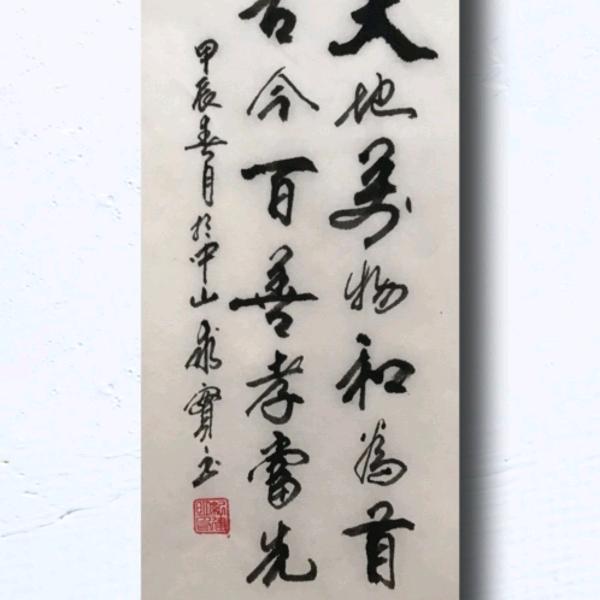 天地万物和為首
古今百善孝當先
甲辰春月於中山